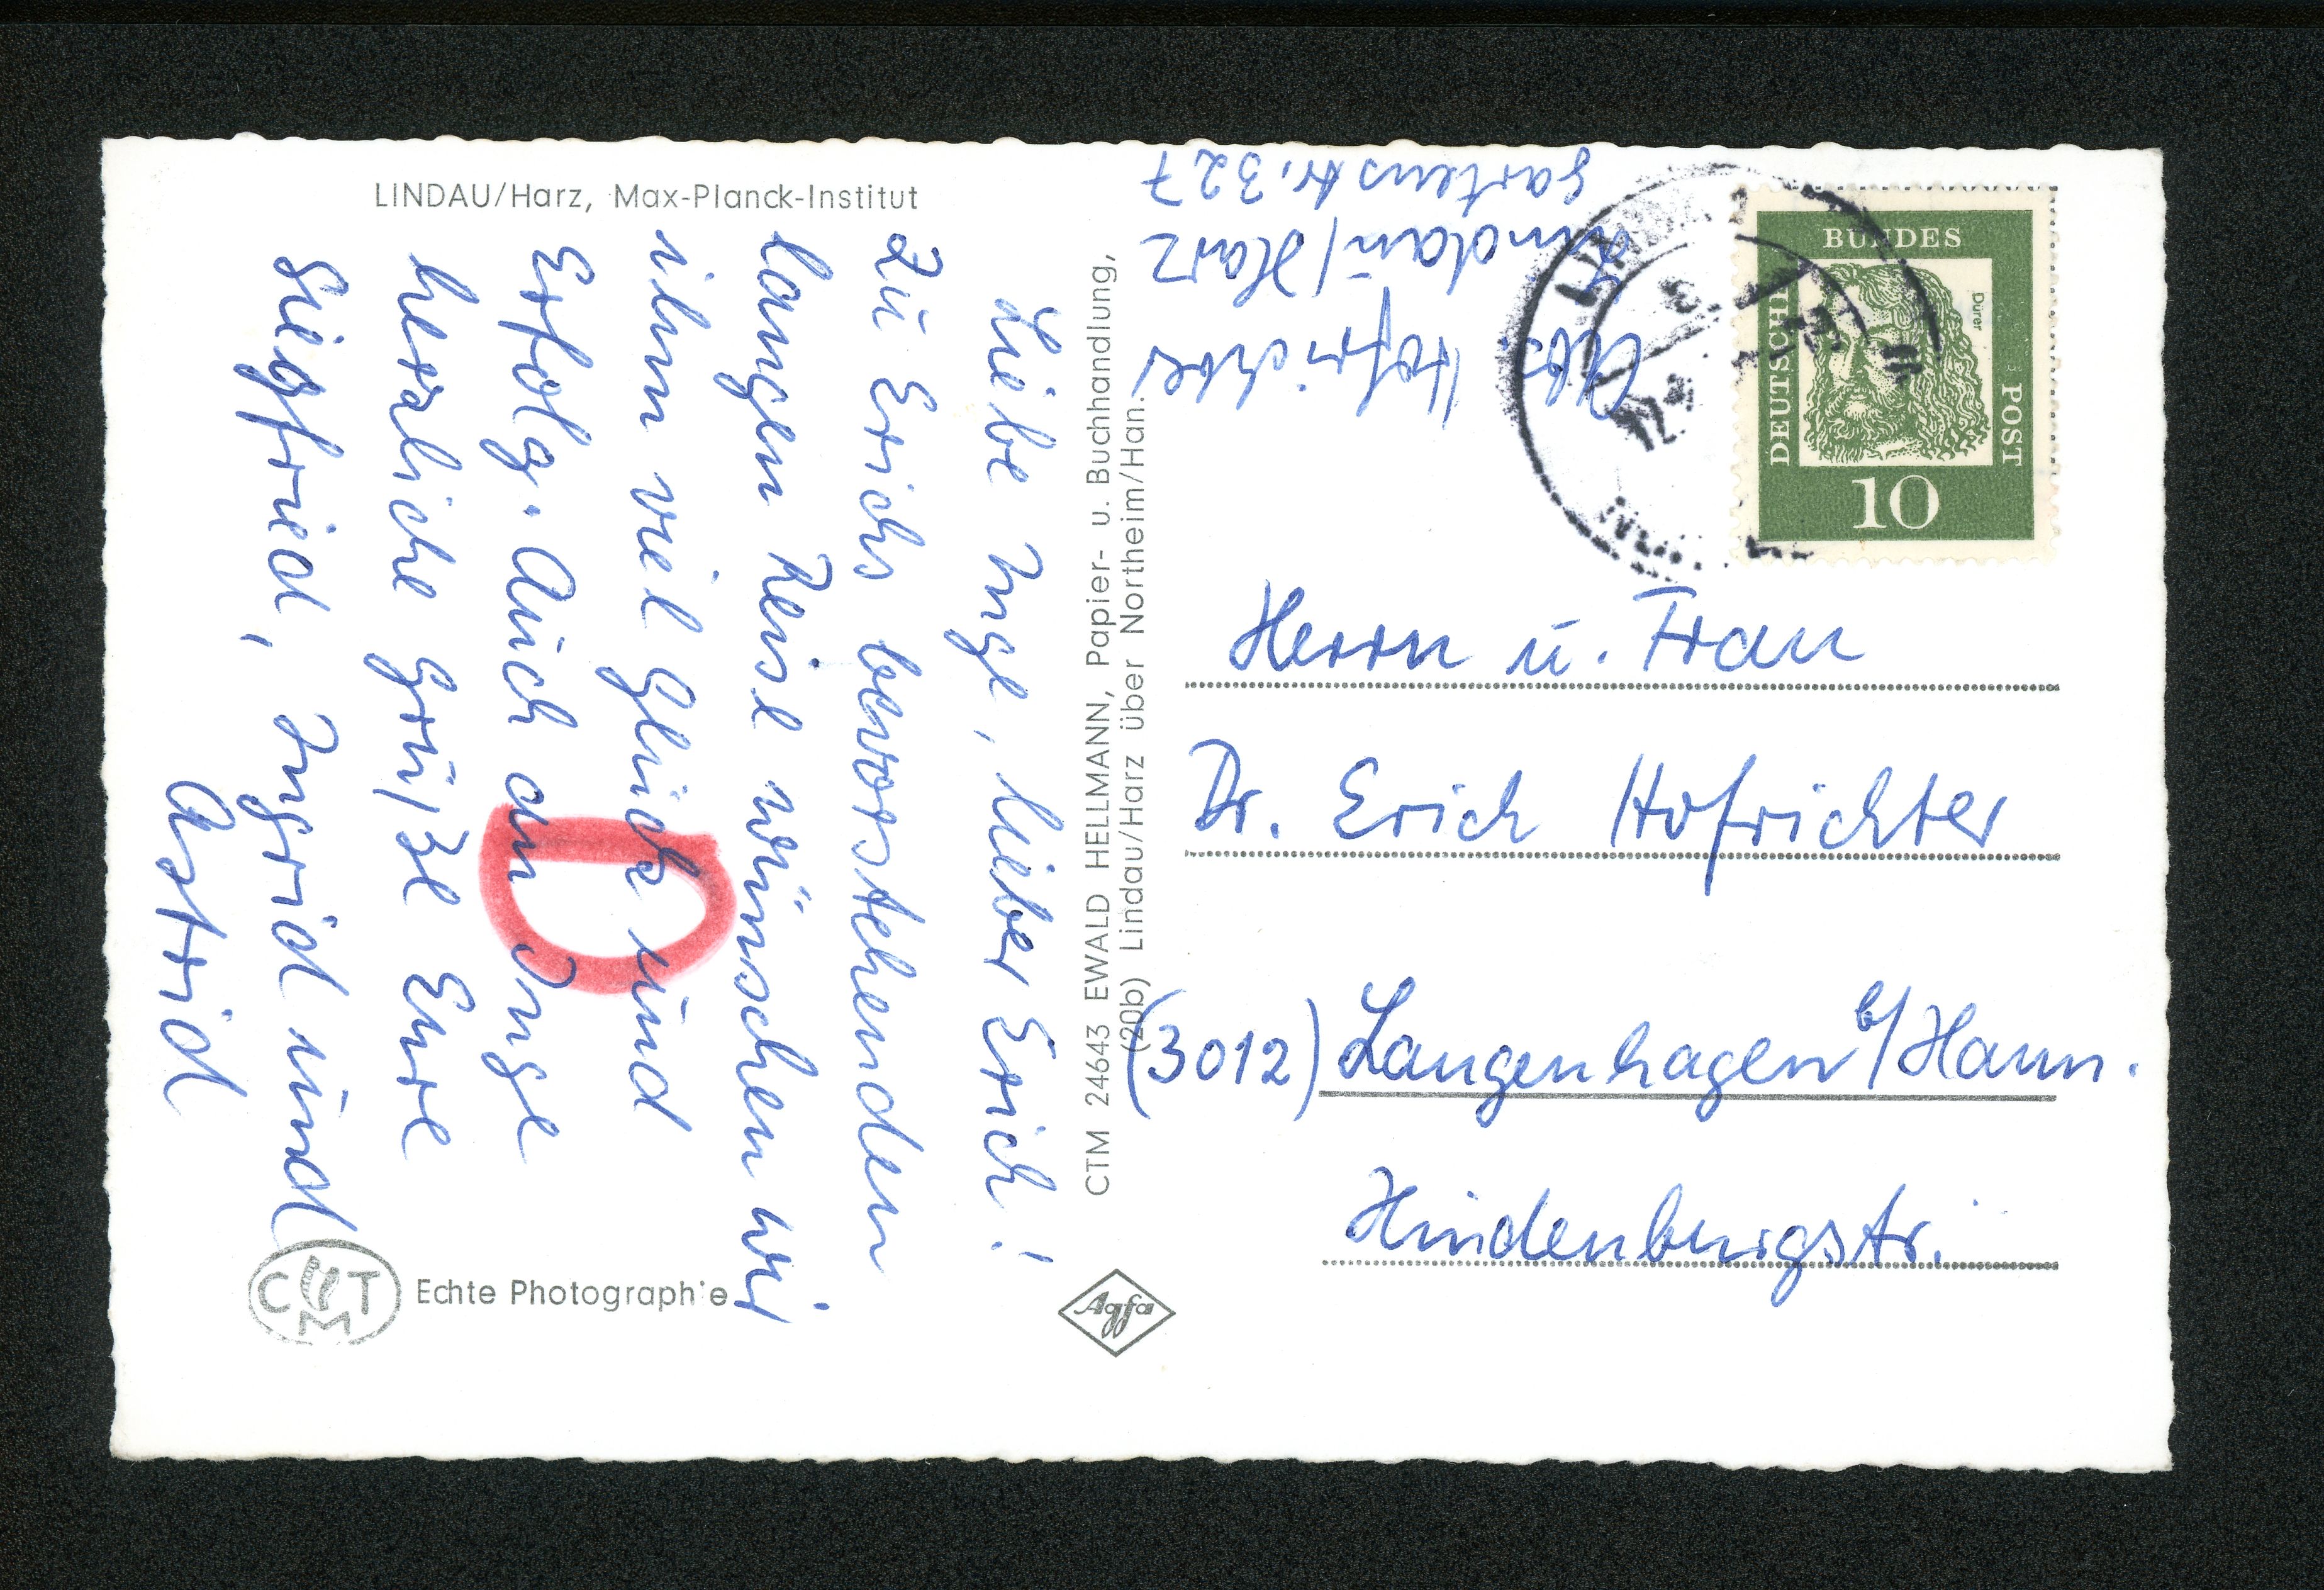 LINDAU/Harz, Max-Planck-Institut
Liebe Inge, lieber Erich!
Zu Erichs bevorstehenden
langen Reise wünschen wir
ihm viel Glück und
Erfolg. Auch an Inge
herzliche Grüße Eure
Siegfried, Ingrid und
Astrid
CTM
Echte Photographie
CTM 24643 EWALD HELLMANN, Papier- u. Buchhandlung,
(20b) Lindau/Harz über Northeim/Han.
Agfa
Abs. Hofrichter
Lindau/Harz
Gartenstr. 327
DEUTSCHE
BUNDES
POST
Dürer
10
Herrn u. Frau
Dr. Erich Hofrichter
(3012) Langenhagen b/Hann.
Hindenburgstr.